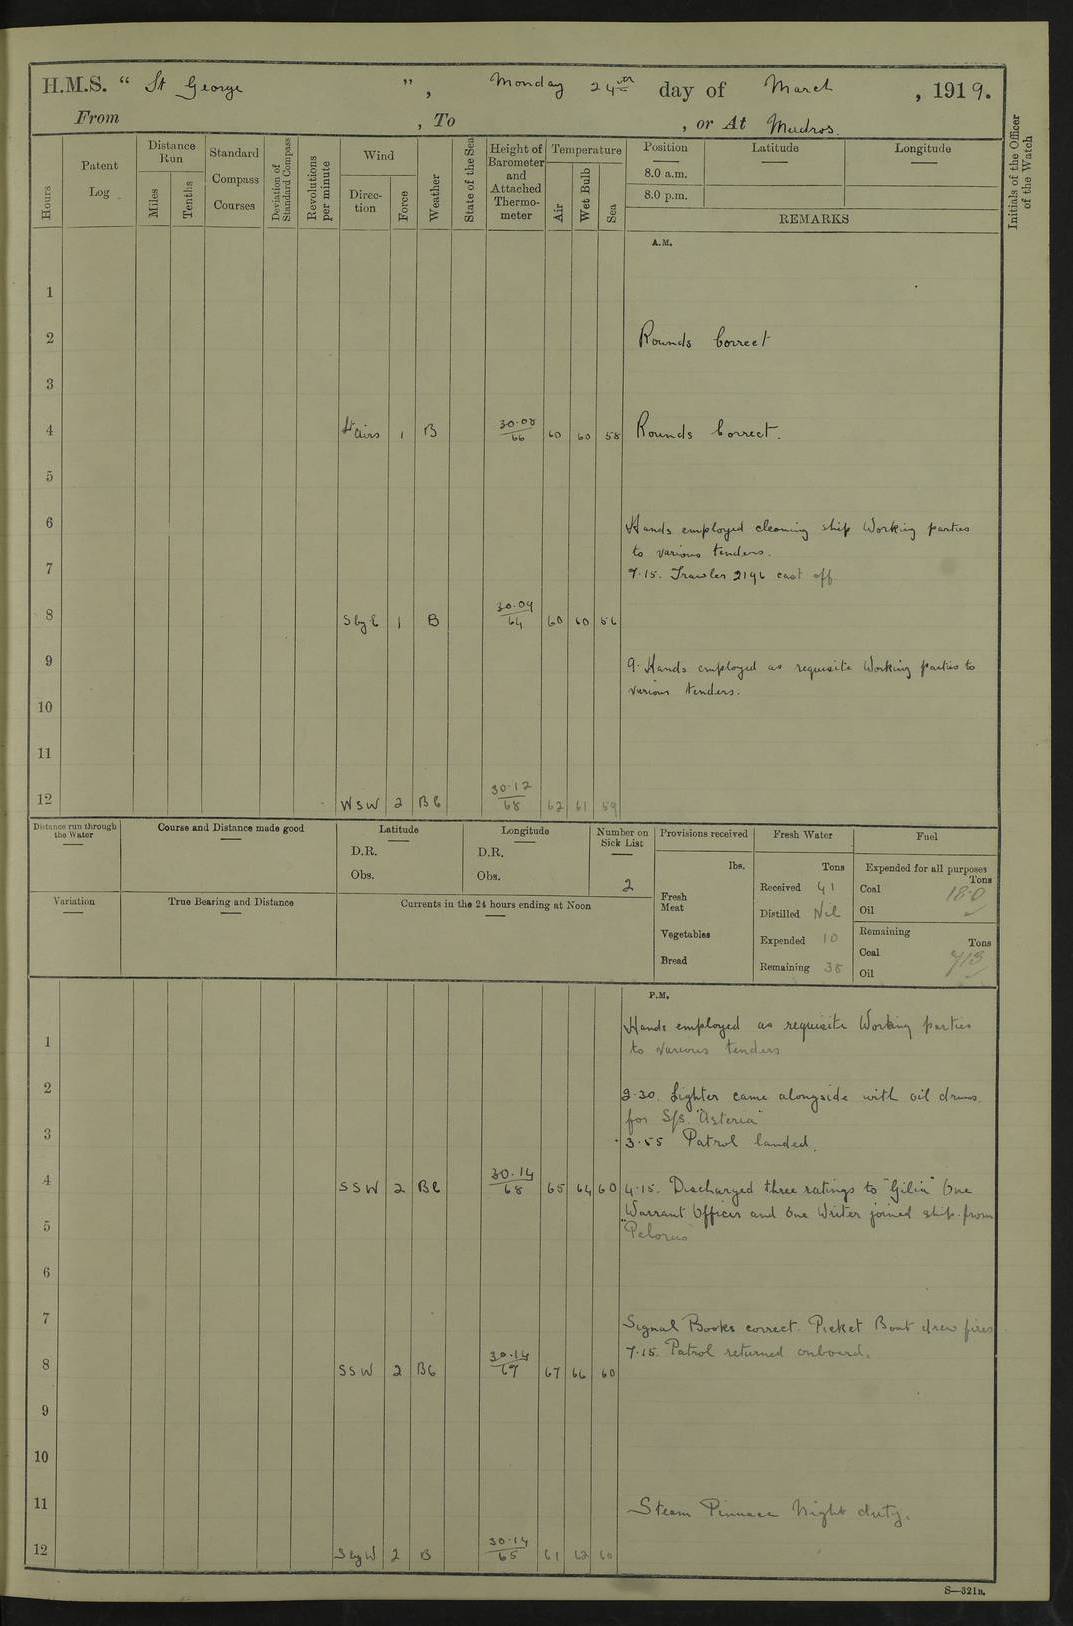 H.M.S. “ St George ”, Monday 24th day of March, 1919.
From , To , or At Mudros.
Hours
Patent Log
Distance Run
Miles
Tenths
Standard Compass Courses
Deviation of Standard Compass
Revolutions per minute
Wind
Direction
Force
Weather
State of the Sea
Height of Barometer and Attached Thermometer
Temperature
Air
Wet Bulb
Sea
Position
8.0 a.m.
8.0 p.m.
Latitude
Longitude
REMARKS
Initials of the Officer of the Watch
A.M.
1
2 Rounds Correct
3
4 Lt Airs 1 B 30.08/66 60 60 58 Rounds Correct.
5
6 Hands employed cleaning ship Working parties
to various tenders.
7 7.15. Trawler 2196 cast off
8 S by E 1 B 30.09/64 60 60 56
9 9. Hands employed as requisite Working parties to
various tenders.
10
11
12 WSW 2 BC 30.12/68 62 61 59
Distance run through the Water
Course and Distance made good
Latitude
D.R.
Obs.
Longitude
D.R.
Obs.
Number on Sick List
2
Variation
True Bearing and Distance
Currents in the 24 hours ending at Noon
Provisions received
lbs.
Fresh Meat
Vegetables
Bread
Fresh Water
Tons
Received 41
Distilled Nil
Expended 10
Remaining 38
Fuel
Expended for all purposes
Tons
Coal 18.0
Oil
Remaining
Tons
Coal 713
Oil
P.M.
Hands employed as requisite Working parties
1
to various tenders
2 2.30. Lighter came alongside with oil drums
for S/S "Asteria"
3 3.55 Patrol landed.
4 SSW 2 BC 30.14/68 65 64 60 4.15. Discharged three ratings to "Gilia" One
Warrant Officer and One Writer joined ship from
5 "Pelorus"
6
7 Signal Books correct. Picket Boat drew fires
7.15. Patrol returned onboard.
8 SSW 2 BC 30.14/67 67 66 60
9
10
11 Steam Pinnace Night duty.
12 S by W 2 B 30.14/65 61 62 60
S—321B.